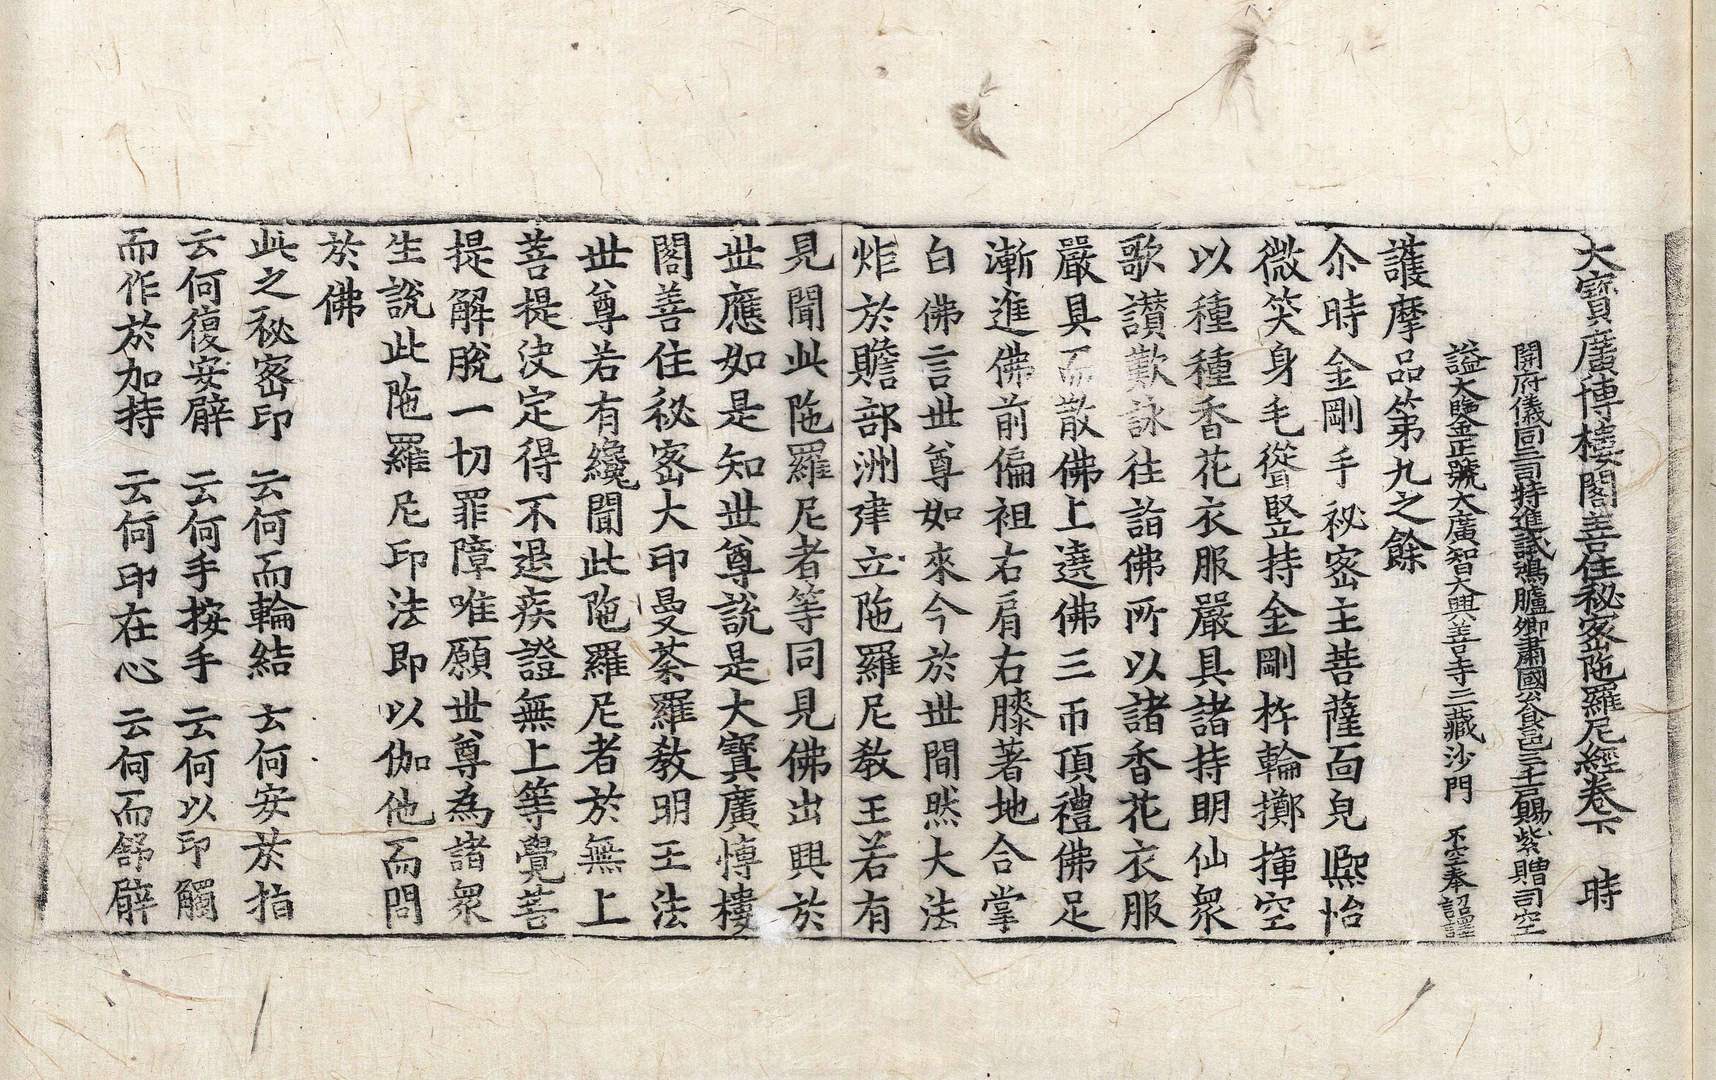 大寶廣博樓閣善住秘密陁羅尼經卷下　時
開府儀同三司特進試鴻臚卿肅國公食邑三千戶賜紫贈司空
謚大鑒正號大廣智大興善寺三藏沙門　不空奉詔譯
護摩品第九之餘
尒時金剛手秘密主菩薩面皃熙怡
微笑身毛聳竪持金剛杵輪擲揮空
以種種香花衣服嚴具諸持明仙衆
歌讃歎詠往詣佛所以諸香花衣服
嚴具而散佛上遶佛三帀頂禮佛足
漸進佛前偏袒右肩右膝著地合掌
白佛言世尊如來今於世間然大法
炬於贍部洲建立陁羅尼教王若有
見聞此陁羅尼者等同見佛出興於
世應如是知世尊說是大寶廣博樓
閣善住秘密大印曼荼羅教明王法
世尊若有纔聞此陁羅尼者於無上
菩提決定得不退疾證無上等覺菩
提解脫一切罪障唯願世尊為諸衆
生說此陁羅尼印法即以伽他而問
於佛
此之秘密印　云何而輪結　云何安於指
云何復安臂　云何手按手　云何以印觸
而作於加持　云何印在心　云何而舒臂